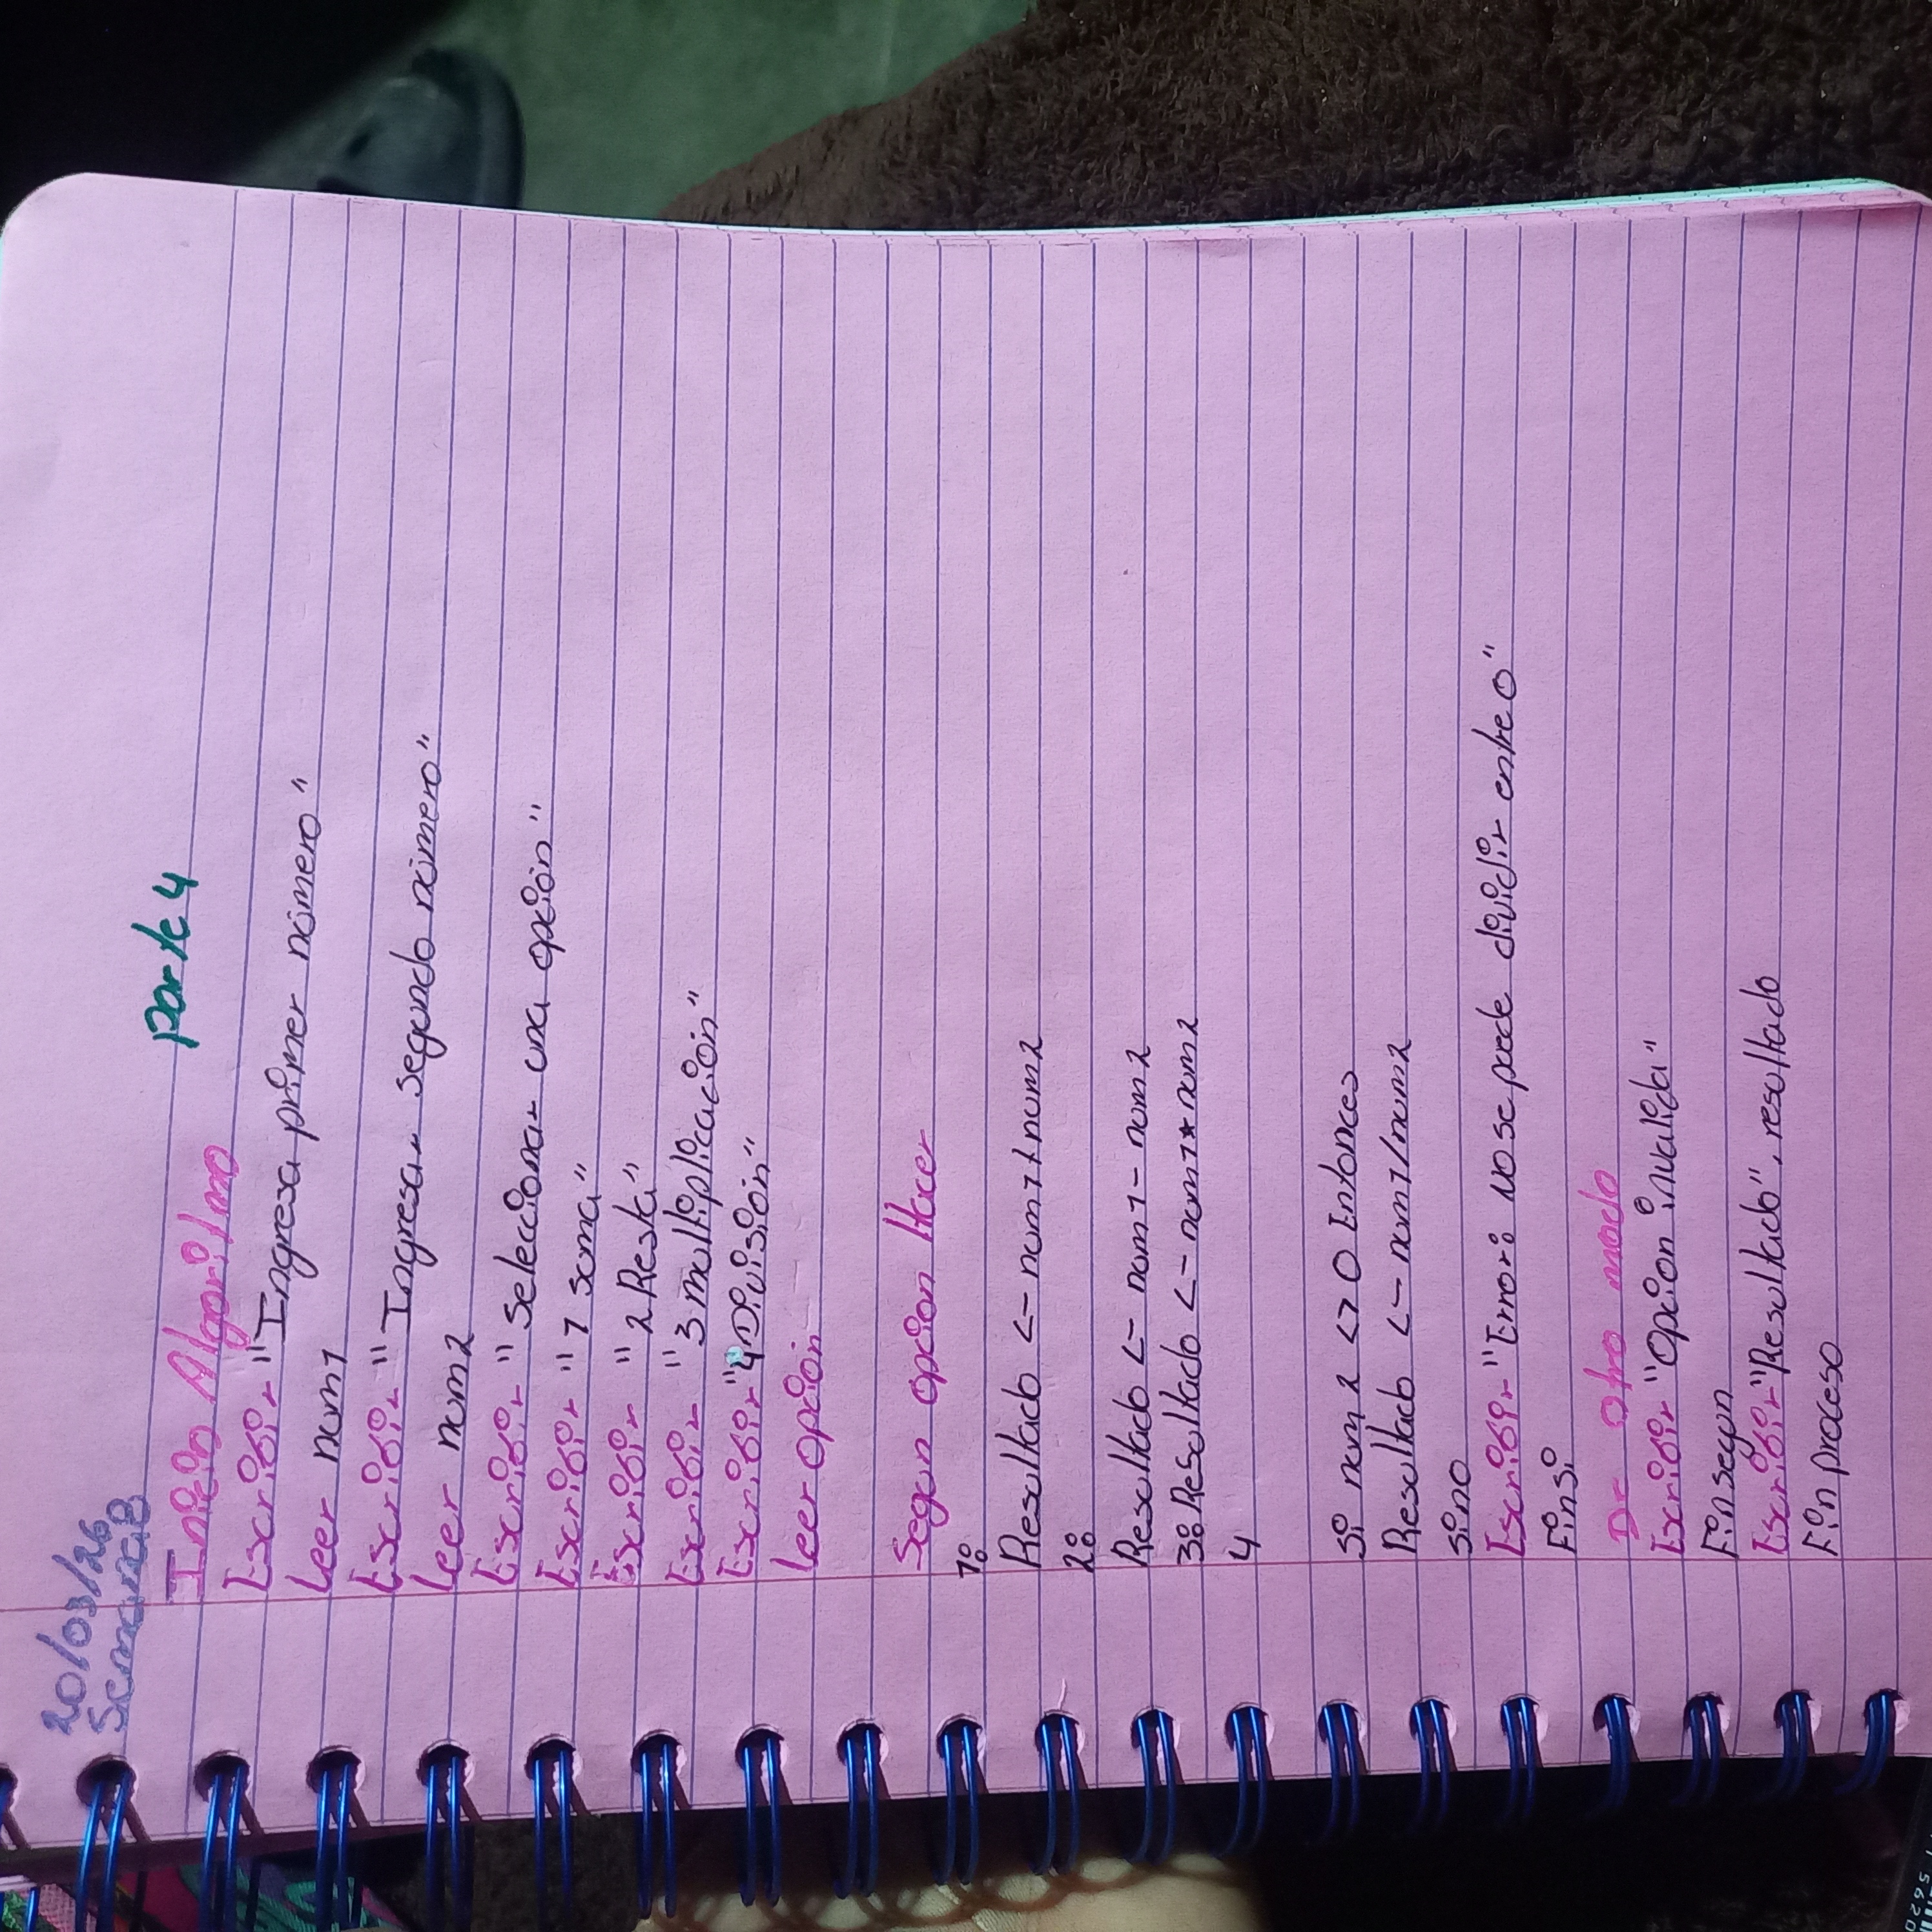 20/03/26
Semana 8
parte 4
Inicio Algoritmo
Escribir "Ingresa primer número"
Leer num1
Escribir "Ingresar segundo número"
Leer num2
Escribir "seleccionar una opción"
Escribir "1 suma"
Escribir "2 Resta"
Escribir "3 multiplicación"
Escribir "4 División"
Leer opción
Segun opcion Hacer
1:
Resultado <- num1+num2
2:
Resultado <- num1-num2
3: Resultado <- num1*num2
4
Si num2 <> 0 Entonces
Resultado <- num1/num2
Sino
Escribir "Error: No se puede dividir entre 0"
Finsi
De otro modo
Escribir "Opcion invalida"
Finsegun
Escribir "Resultado", resultado
Fin proceso